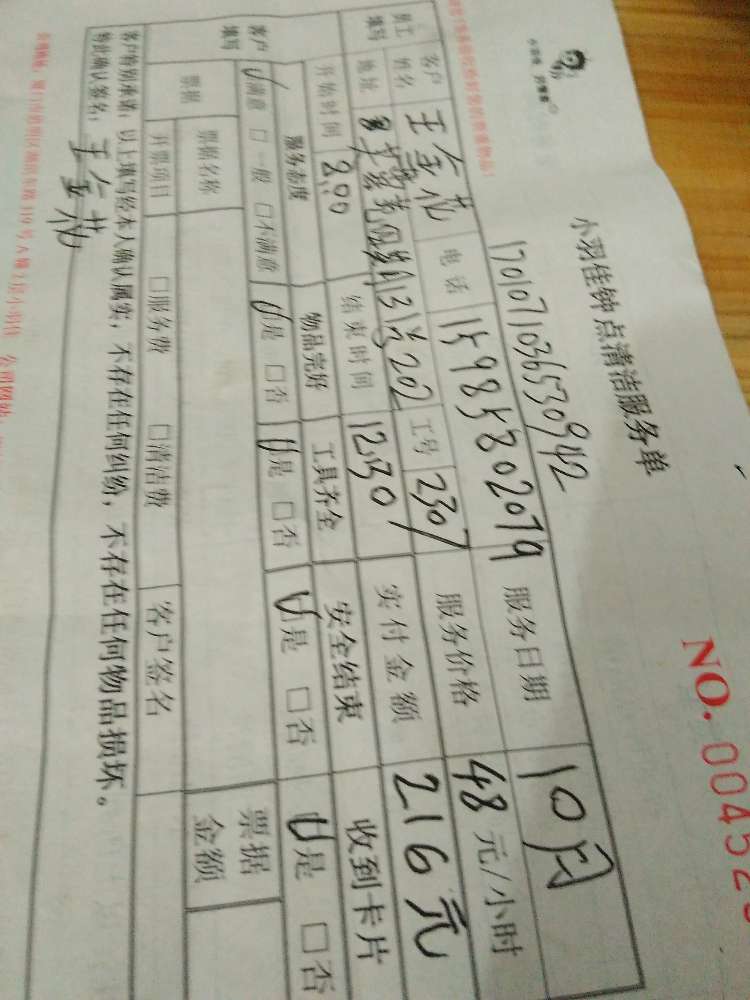 小羽佳钟点清洁服务单
NO. 00452
1701071036530942
员工填写 客户姓名 王金花 电话 15985802079 服务日期 10月
地址 202 工号 2307 服务价格 48元/小时
开始时间 8:00 结束时间 12:30 实付金额 216元
客户填写 服务态度 物品完好 工具齐全 安全结束 收到卡片
满意 □一般 □不满意 是 □否 是 □否 是 □否 是 □否
票据 票据名称 票据金额
开票项目 □服务费 □清洁费 客户签名
客户特别承诺：以上填写经本人确认属实，不存在任何纠纷，不存在任何物品损坏。
特此确认签名：王金花